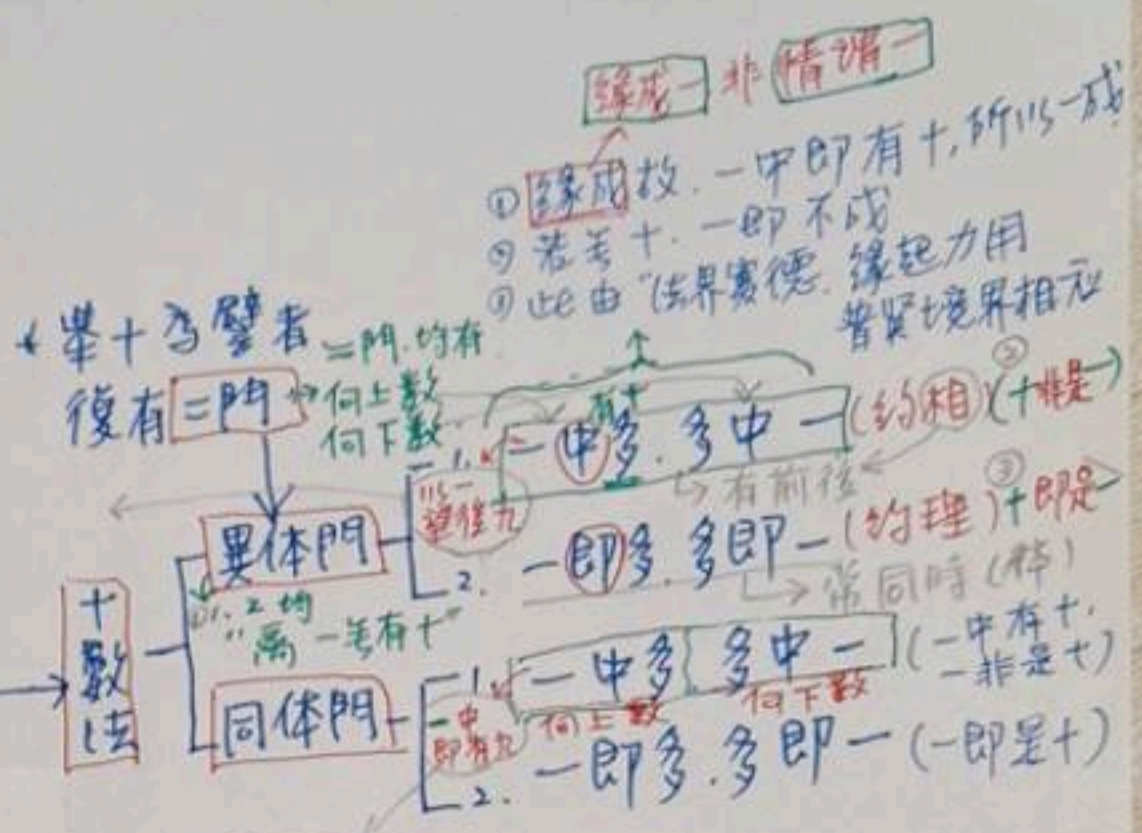 緣成一 非 情謂一
① 緣成故.一中即有十,所以一成
② 若無十.一即不成
③ 此由"法界實德.緣起力用
普賢境界相应
舉十為譬者
復有二門
二門.均有
向上數
向下數
有十
1. 一中多.多中一 (約相) ② (十非是一)
以一
望後九
有前後
2. 一即多.多即一 (約理) ③ 十即是一
常同時
異体門
1. 2 均
"离一無有十"
十數法
同体門
一中
即有九
1. 一中多 多中一 (一中有十.
一非是十)
向上數 向下數
2. 一即多.多即一 (一即是十)